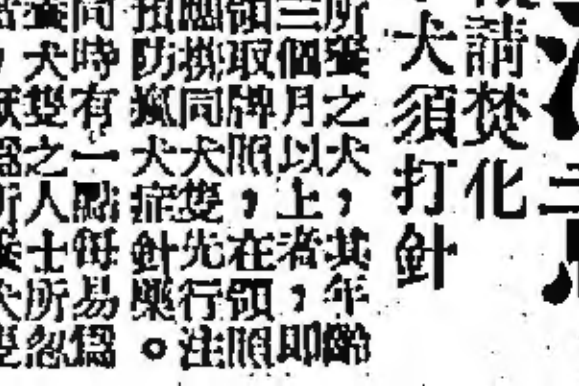 請焚化
犬須打針
所養之犬，其年齡
三個月以上者，即
領取牌照，在領照
同犬隻先行注
預防瘋犬症針藥。
同時有一點每易爲
養犬隻之人士所忽